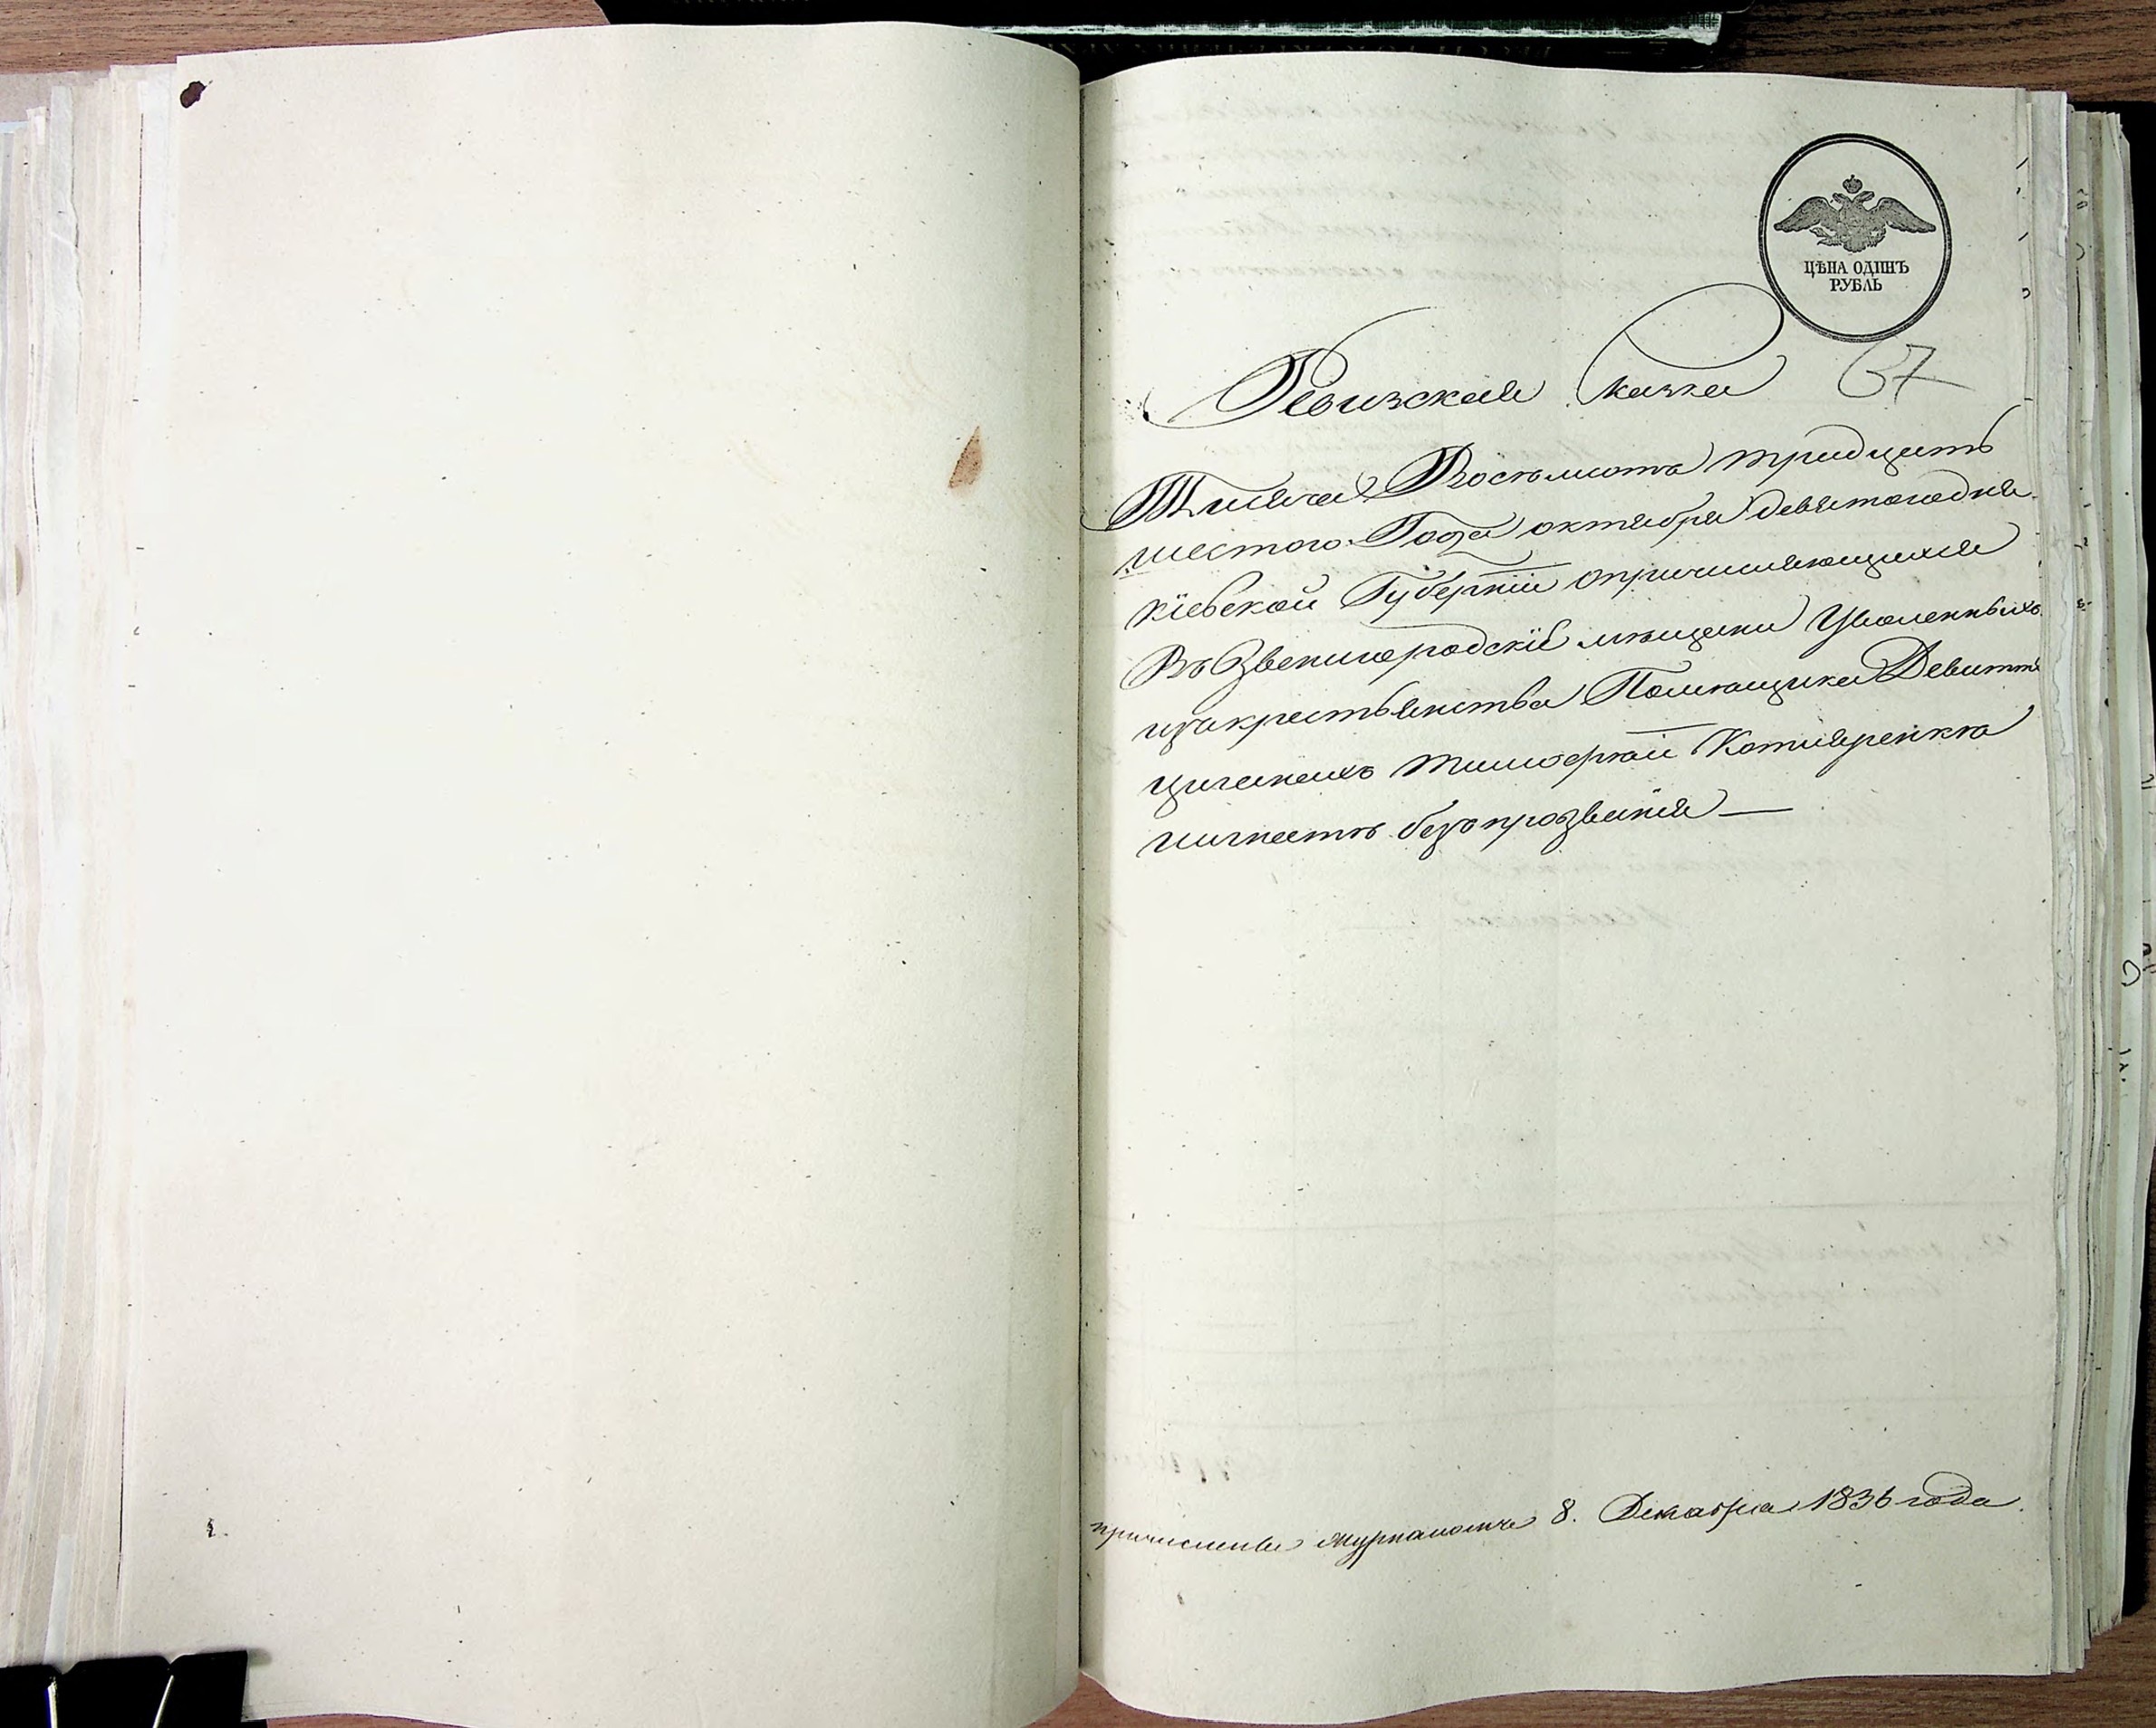 ЦѢНА ОДИНЪ
РУБЛЬ
67
Ревизская Сказка
Тысяча Восемьсотъ тридцать
шестого Года октября девятогодня
Кіевской Губерніи опричисляющихся
Въ Звенигородскіе мѣщане Уволенныхъ
изъ крестьянства Помещика Девитта
Циганахъ Тимофѣй Котляренкѣ
Игнатѣ безъ прозванія —
причислены журналомъ 8. Декабря 1836 года.